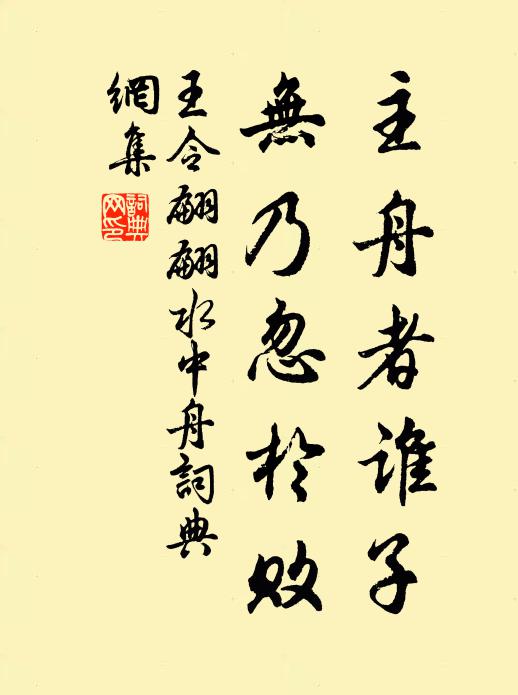 主舟者誰子
無乃忽於敗
王令翩翩水中舟詞典
網集
詞典網印